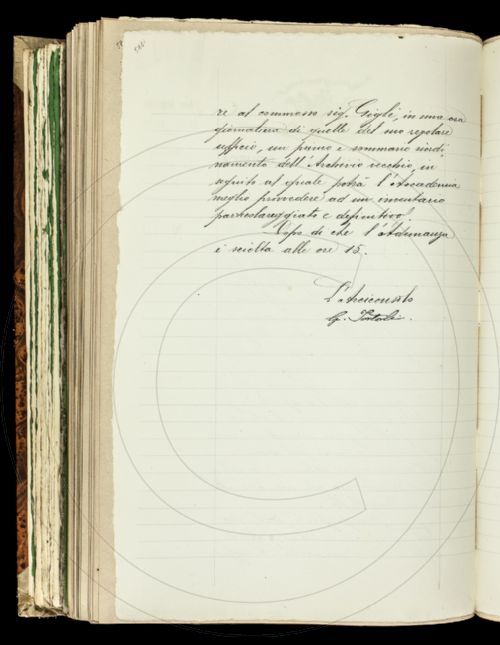 re al commesso sig. Gigli, in una ora
giornaliera di quelle del suo regolare
ufficio, un primo e sommario riordi
namento dell'Archivio vecchio, in
seguito al quale potrà l'Accademia
meglio provvedere ad un inventario
particolareggiato e definitivo.
Dopo di che l'Adunanza
è sciolta alle ore 15.
L'Arciconsolo
G.